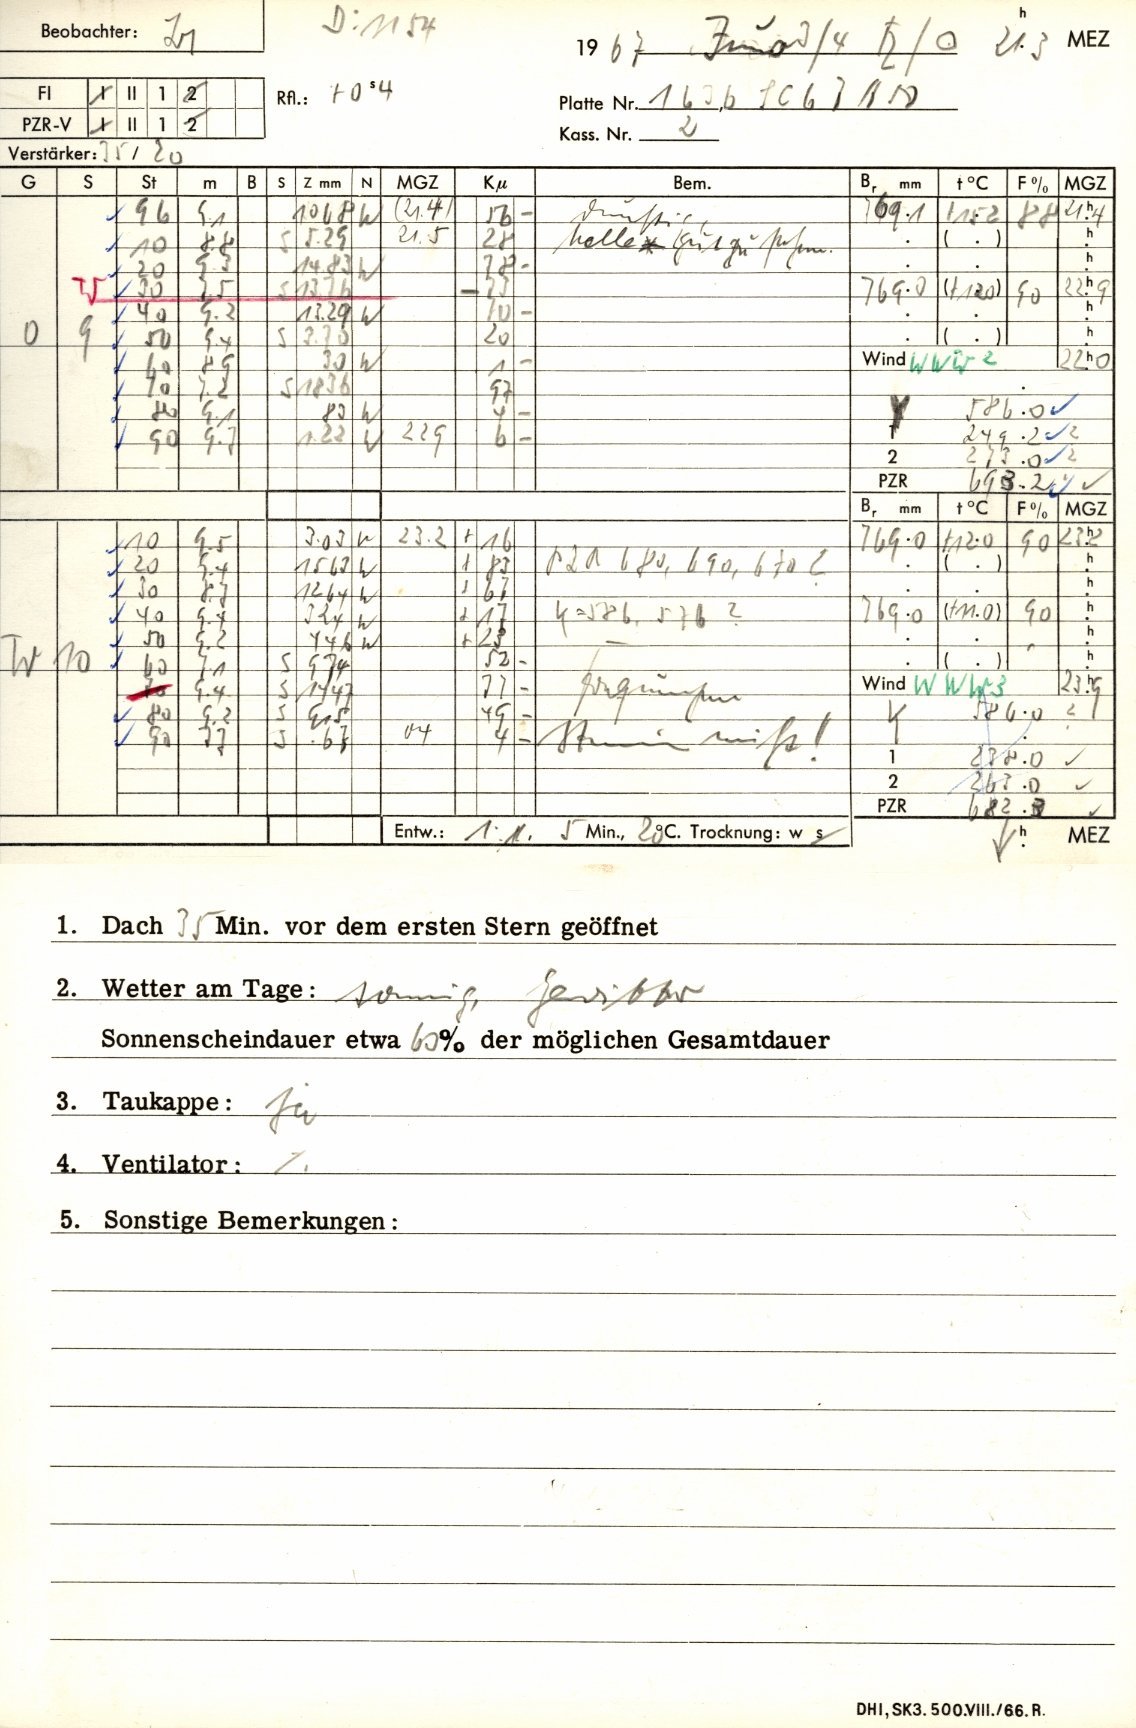 Beobachter:
D: 1154
19 67 Juno 3/4 21 h 3 MEZ
FI I II 1 2
Rfl.: +0 s 4
Platte Nr.
PZR-V I II 1 2
Kass. Nr. 2
Verstärker: 35 / 20
G S St m B S Z mm N MGZ Kµ Bem. Br mm t °C F % MGZ
96 9.1 1068 W (21.4) 56 - 769.1 +15.2 88 21 h 4
10 8.8 S 5.29 21.5 28 helle . ( . ) h
20 9.3 1483 W 78 - . . h
30 S 769.0 (+12.0) 90 22 h 9
40 9.2 13.29 W 10 - . . h
0 9 50 9.4 S 3.70 20 . ( . ) h
60 8.9 30 W 1 - Wind WWW 2 22 h 0
70 S 1836 97
80 9.1 83 W 4 - 586.0
90 9.7 1.22 W 229 6 - 1 249.2
2 273.0
PZR 693.2
Br mm t °C F % MGZ
10 9.5 3.03 W 23.2 + 16 769.0 +12.0 90 23 h 2
20 9.4 1563 W + 83 PZR 680, 690, 670 ? . ( . ) h
30 8.7 1264 W + 67 . . h
40 9.4 324 W + 17 = 586, 576 ? 769.0 (+11.0) 90 h
50 9.2 446 W + 23 . . h
W 10 60 S 974 52 - . ( . ) h
70 9.4 S 1447 77 - Wind WWW 3 23 h 9
80 9.2 S 915 49 - 586.0
90 S .67 04 4 - 1 238.0
2 263.0
PZR 682.3
Entw.: 5 Min., 20 °C. Trocknung: w s h MEZ
1. Dach 35 Min. vor dem ersten Stern geöffnet
2. Wetter am Tage: sonnig, Gewitter
Sonnenscheindauer etwa 60 % der möglichen Gesamtdauer
3. Taukappe: ja
4. Ventilator:
5. Sonstige Bemerkungen:
DHI, SK3. 500.VIII./66. R.